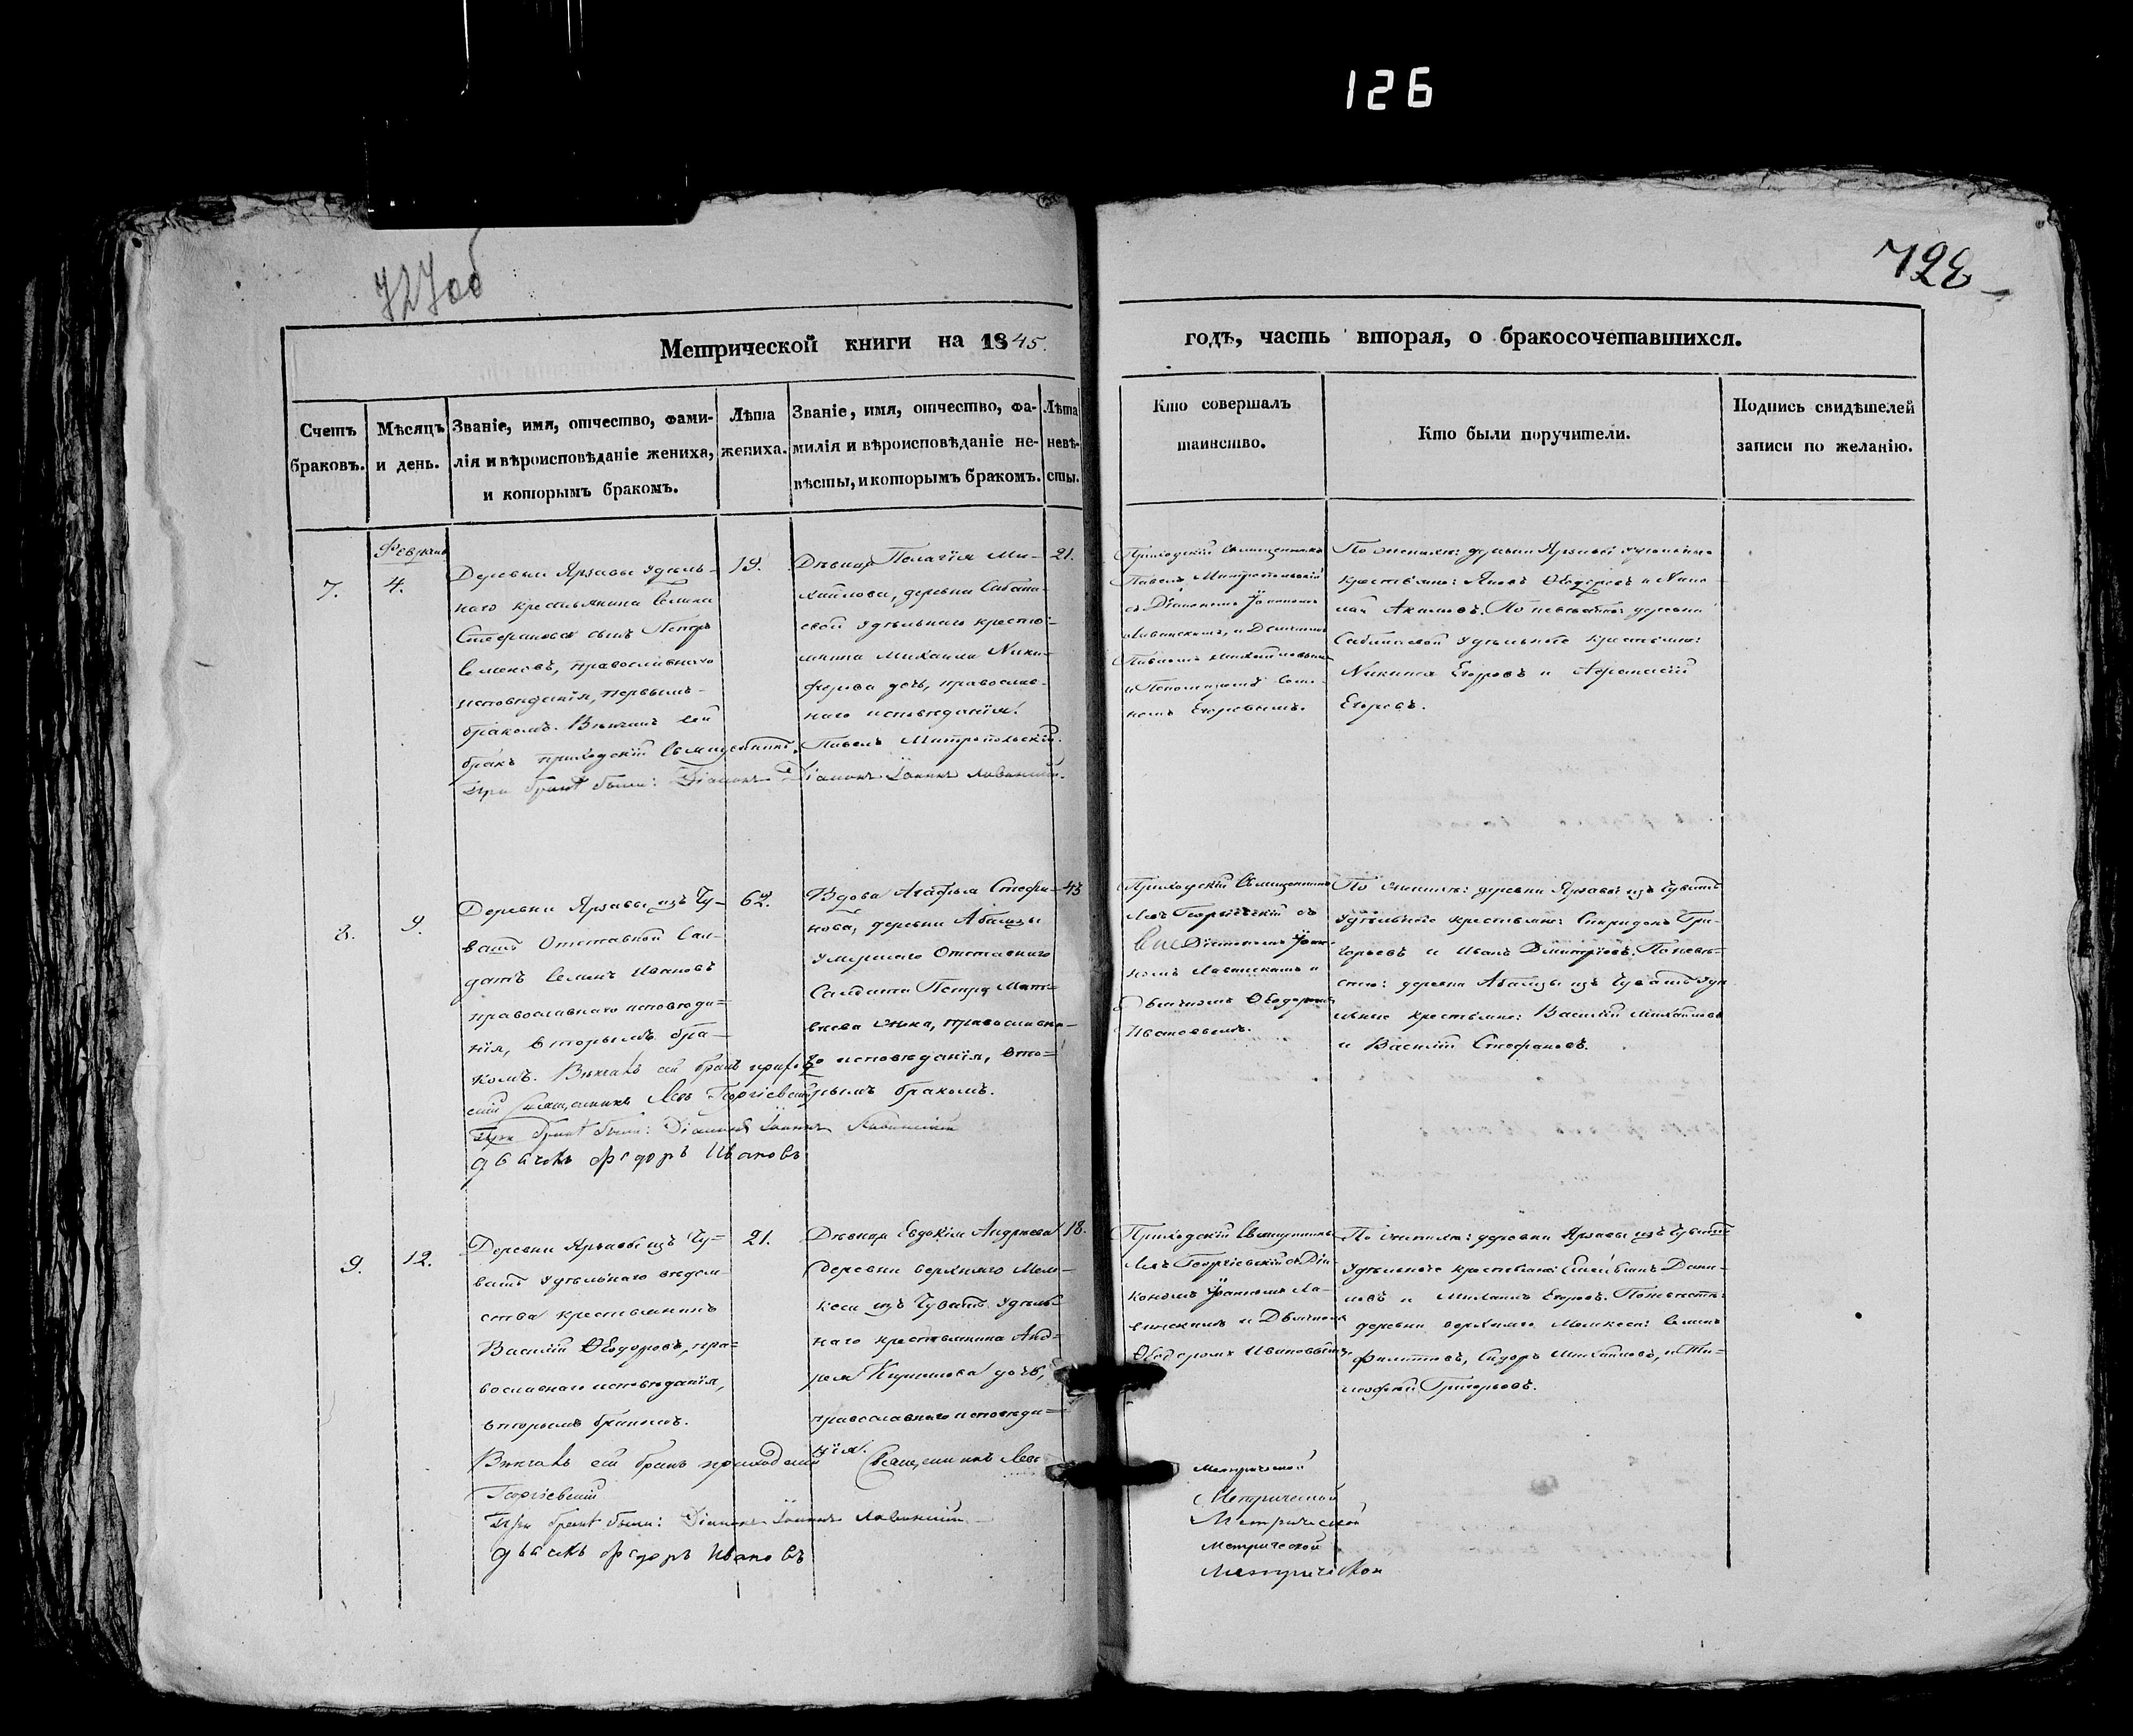 126
727об
728
Метрической книги на 1845.
годъ, часть вторая, о бракосочетавшихся.
Счетъ браковъ.
Мѣсяцъ и день.
Званіе, имя, отчество, фами-
лія и вѣроисповѣданіе жениха,
и которымъ бракомъ.
Лѣта
жениха.
Званіе, имя, отчество, фа-
милія и вѣроисповѣданіе не-
вѣсты, и которымъ бракомъ.
Лѣта
невѣ-
сты.
Кто совершалъ
таинство.
Кто были поручители.
Подпись свидѣтелей
записи по желанію.
7.
Февраль
4.
Деревни Арзавы удѣль-
наго крестьянина Семена
Стефанова сынъ Петръ
Семеновъ, православнаго
исповѣданія, первымъ
бракомъ. Вѣнчалъ сей
бракъ приходскій Священникъ Павелъ Митропольскій.
При бракѣ были: Діаконъ Діаконъ Іоаннъ Лавинскій.
19.
Дѣвица Пелагія Ми-
хайлова, деревни Сабана-
евой удѣльнаго крестья-
нина Михаила Ники-
форова дочь, православ-
наго исповѣданія.
21.
Приходскій Священникъ
Павелъ Митропольскій
съ Діакономъ Іоанномъ
Лавинскимъ, и Дьячкомъ
Павломъ Михайловымъ
и Пономаремъ
Егоровымъ.
По женихѣ: деревни Арзавы удѣльные
крестьяне: Яковъ Ѳедоровъ и Нико-
лай Акимовъ. По невѣстѣ: деревни
Сабанаевой удѣльные крестьяне:
Никита Егоровъ и Афанасій
Егоровъ.
8.
9.
Деревни Арзавы изъ Чу-
вашъ Отставной Сол-
датъ Семенъ Ивановъ
православнаго исповѣда-
нія, вторымъ бра-
комъ. Вѣнчалъ сей бракъ приход
скій Священникъ Левъ Георгіевскій
При бракѣ были: Діаконъ Іоаннъ Лавинскій
дьячекъ Федоръ Ивановъ
62.
Вдова Агафья Стефа-
нова, деревни Абамзы
умершаго Отставнаго
Солдата Петра Мат-
вѣева жена, православна-
го исповѣданія, вто-
рымъ бракомъ.
43
Приходскій Священникъ
Левъ Георгіевскій съ
Діакономъ Іоан-
номъ Лавинскимъ и
Дьячкомъ Ѳеодоромъ
Ивановымъ.
По женихѣ: деревни Арзавы изъ Чувашъ
удѣльные крестьяне: Спиридонъ Гри-
горьевъ и Иванъ Дмитріевъ. По невѣ-
стѣ: деревни Абамзы изъ Чувашъ удѣ
льные крестьяне: Василій Михайловъ
и Василій Стефановъ.
9.
12.
Деревни Арзавы изъ Чу-
вашъ удѣльнаго вѣдом-
ства крестьянинъ
Василій Ѳеодоровъ, пра-
вославнаго исповѣданія,
вторымъ бракомъ.
Вѣнчалъ сей бракъ приходскій Священникъ Левъ
Георгіевскій
При бракѣ были: Діаконъ Іоаннъ Лавинскій
дьячекъ Федоръ Ивановъ
21.
Дѣвица Евдокія Андреева
деревни верхняго Меле-
кеса изъ Чувашъ удѣль-
наго крестьянина Анд-
рея Кирилова дочь,
православнаго исповѣда-
нія.
18.
Приходскій Священникъ
Левъ Георгіевскій съ Діа-
кономъ Іоанномъ Ла-
винскимъ и Дьячкомъ
Ѳеодоромъ Ивановымъ.
По женихѣ: деревни Арзавы изъ Чувашъ
удѣльные крестьяне: Емельянъ Дани-
ловъ и Михаилъ Егоровъ. По невѣстѣ:
деревни верхняго Мелекеса: Семенъ
Филиповъ, Сидоръ Михайловъ, и Ти-
мофей Григорьевъ.
Метрической
Метрической
Метрической
Метрической
Метрической